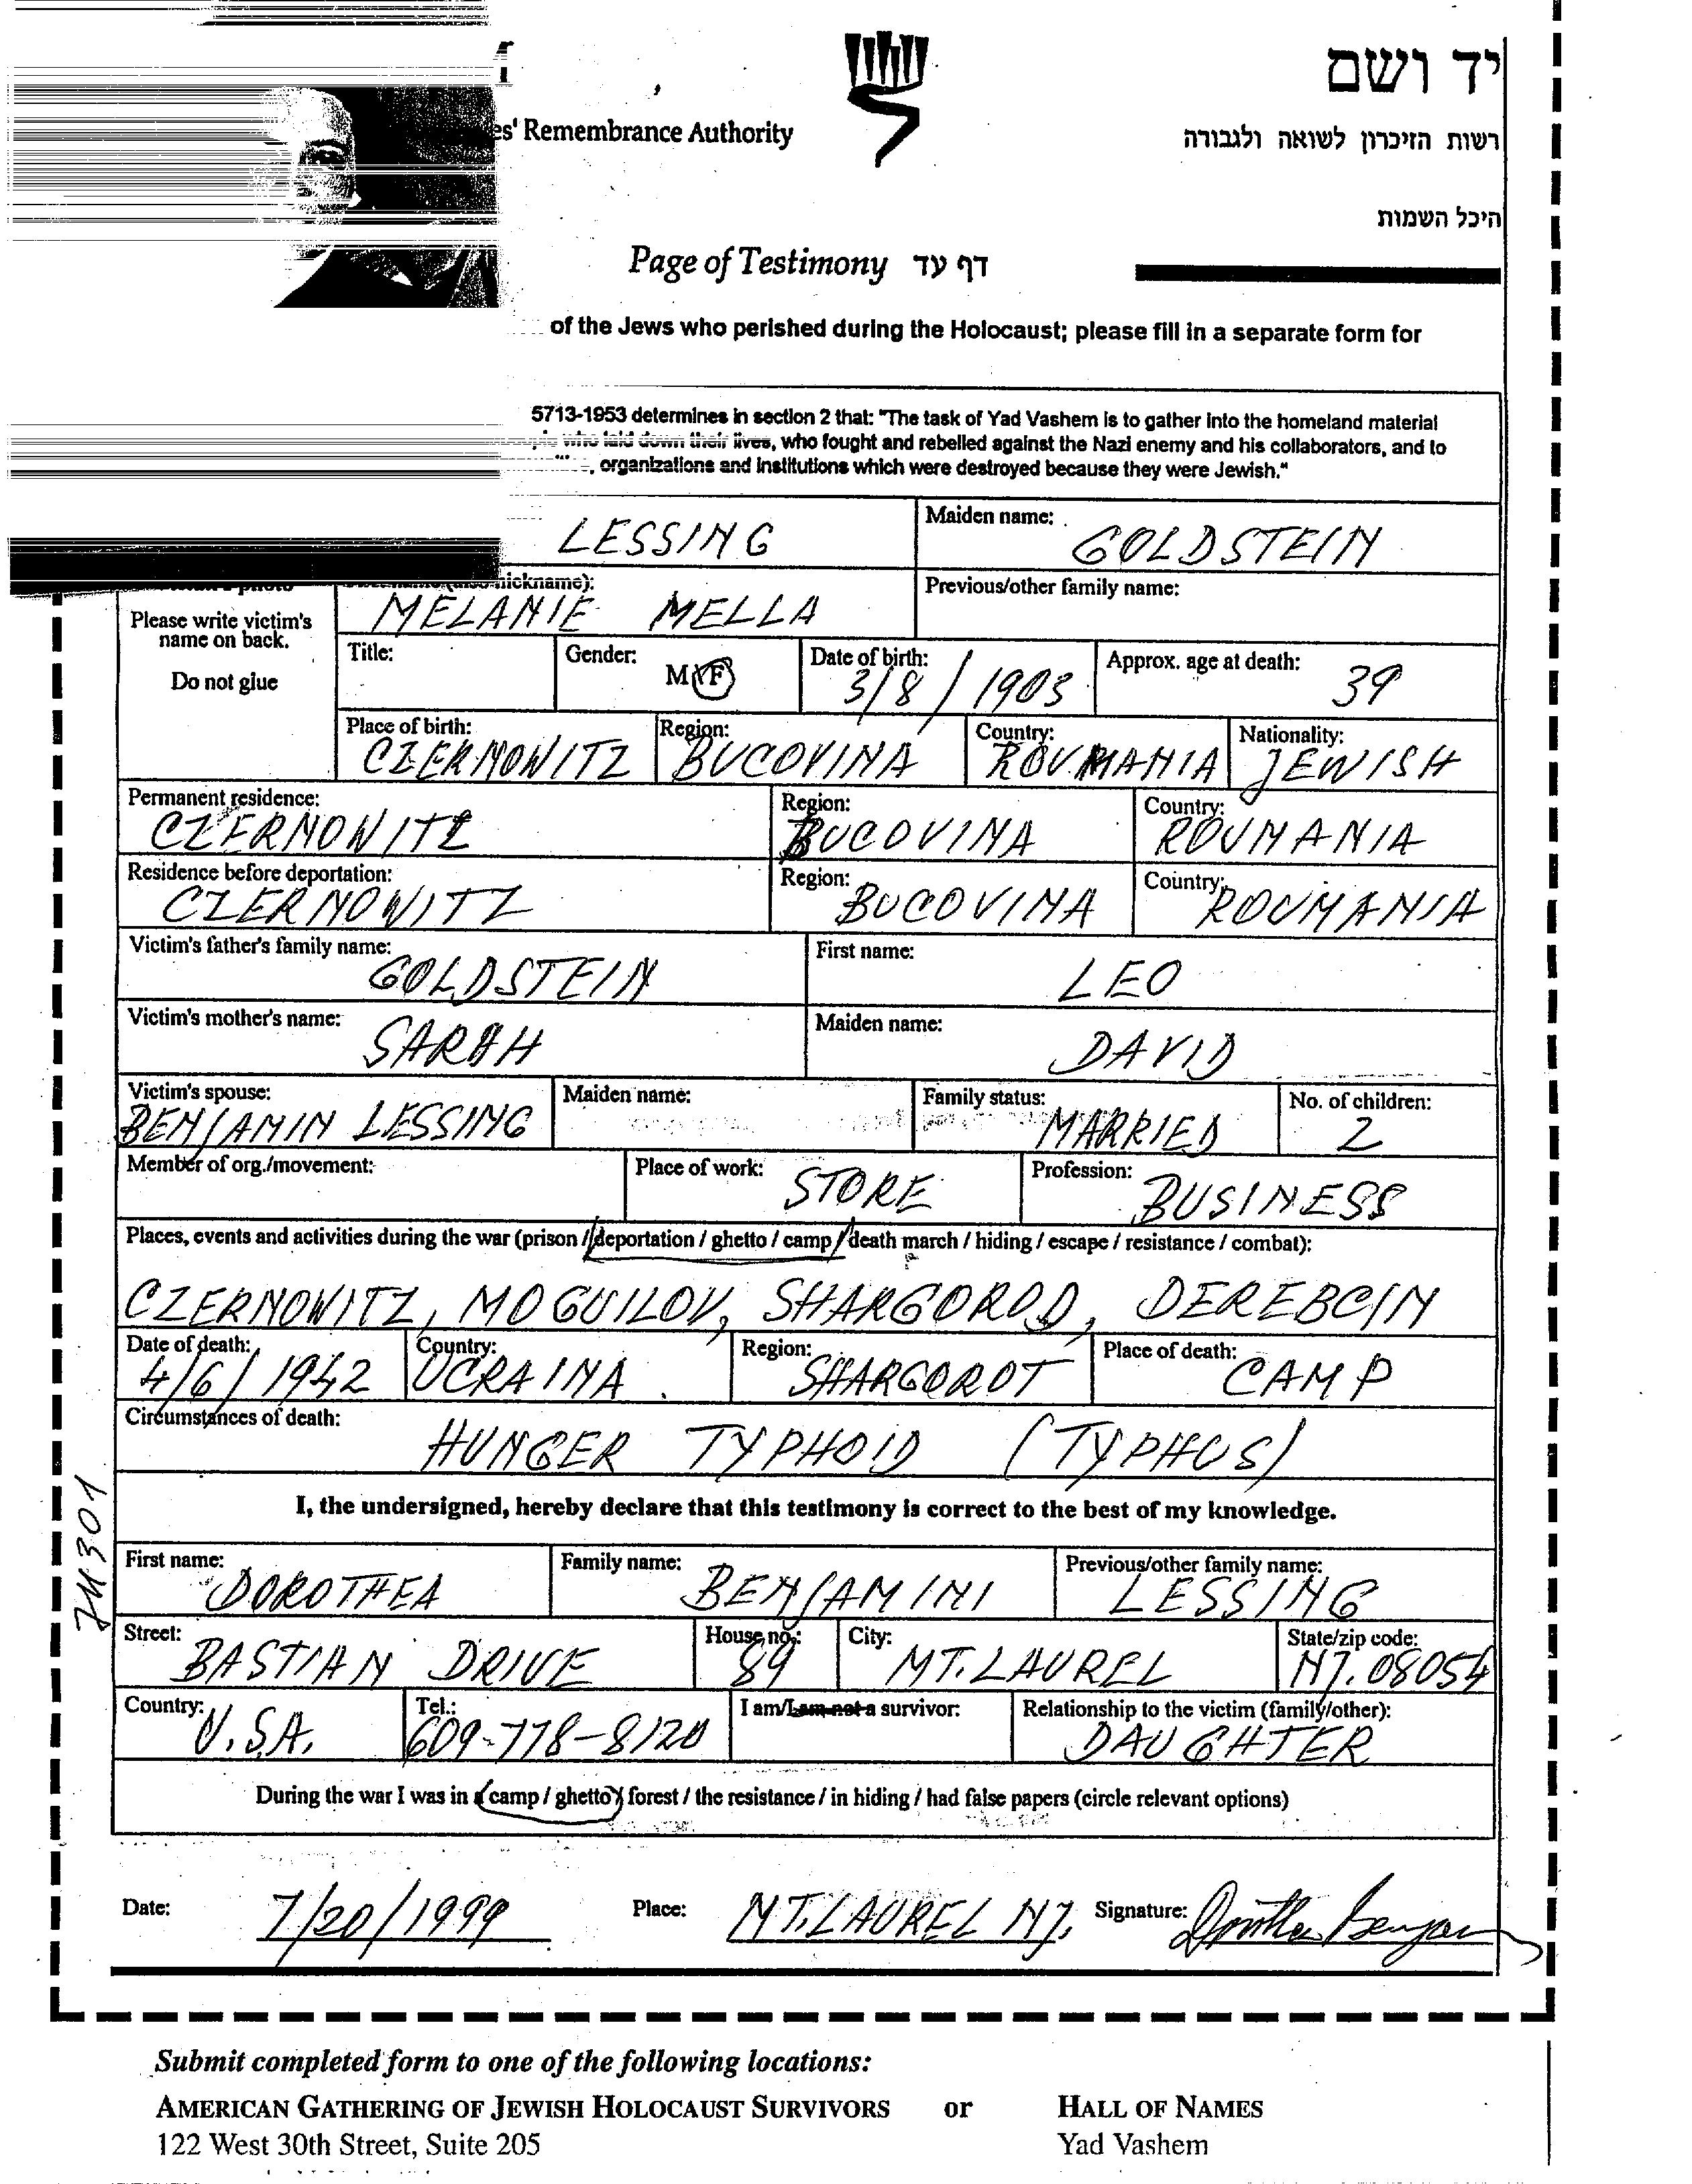 יד ושם
es' Remembrance Authority
רשות הזיכרון לשואה ולגבורה
היכל השמות
Page of Testimony דף עד
of the Jews who perished during the Holocaust; please fill in a separate form for
5713-1953 determines in section 2 that: "The task of Yad Vashem is to gather into the homeland material
who laid down their lives, who fought and rebelled against the Nazi enemy and his collaborators, and to
, organizations and institutions which were destroyed because they were Jewish."
LESSING
Maiden name: GOLDSTEIN
Please write victim's
name on back.
Do not glue
nickname): MELANIE MELLA
Previous/other family name:
Title:
Gender: M F
Date of birth: 3/8/1903
Approx. age at death: 39
Place of birth: CZERNOWITZ
Region: BUCOVINA
Country: ROUMANIA
Nationality: JEWISH
Permanent residence: CZERNOWITZ
Region: BUCOVINA
Country: ROUMANIA
Residence before deportation: CZERNOWITZ
Region: BUCOVINA
Country: ROUMANIA
Victim's father's family name: GOLDSTEIN
First name: LEO
Victim's mother's name: SARAH
Maiden name: DAVID
Victim's spouse: BENJAMIN LESSING
Maiden name:
Family status: MARRIED
No. of children: 2
Member of org./movement:
Place of work: STORE
Profession: BUSINESS
Places, events and activities during the war (prison / deportation / ghetto / camp / death march / hiding / escape / resistance / combat):
CZERNOWITZ, MOGUILOV, SHARGOROD, DEREBCIN
Date of death: 4/6/1942
Country: UCRAINA.
Region: SHARGOROT
Place of death: CAMP
Circumstances of death: HUNGER TYPHOID (TYPHUS)
I, the undersigned, hereby declare that this testimony is correct to the best of my knowledge.
First name: DOROTHEA
Family name: BENJAMINI
Previous/other family name: LESSING
Street: BASTIAN DRIVE
House no.: 89
City: MT. LAUREL
State/zip code: NJ. 08054
Country: U.S.A.
Tel.: 609-778-8120
I am/I am not a survivor:
Relationship to the victim (family/other): DAUGHTER
During the war I was in a camp / ghetto / forest / the resistance / in hiding / had false papers (circle relevant options)
Date: 7/20/1999
Place: MT. LAUREL NJ.
Signature:
Submit completed form to one of the following locations:
AMERICAN GATHERING OF JEWISH HOLOCAUST SURVIVORS or HALL OF NAMES
122 West 30th Street, Suite 205
Yad Vashem